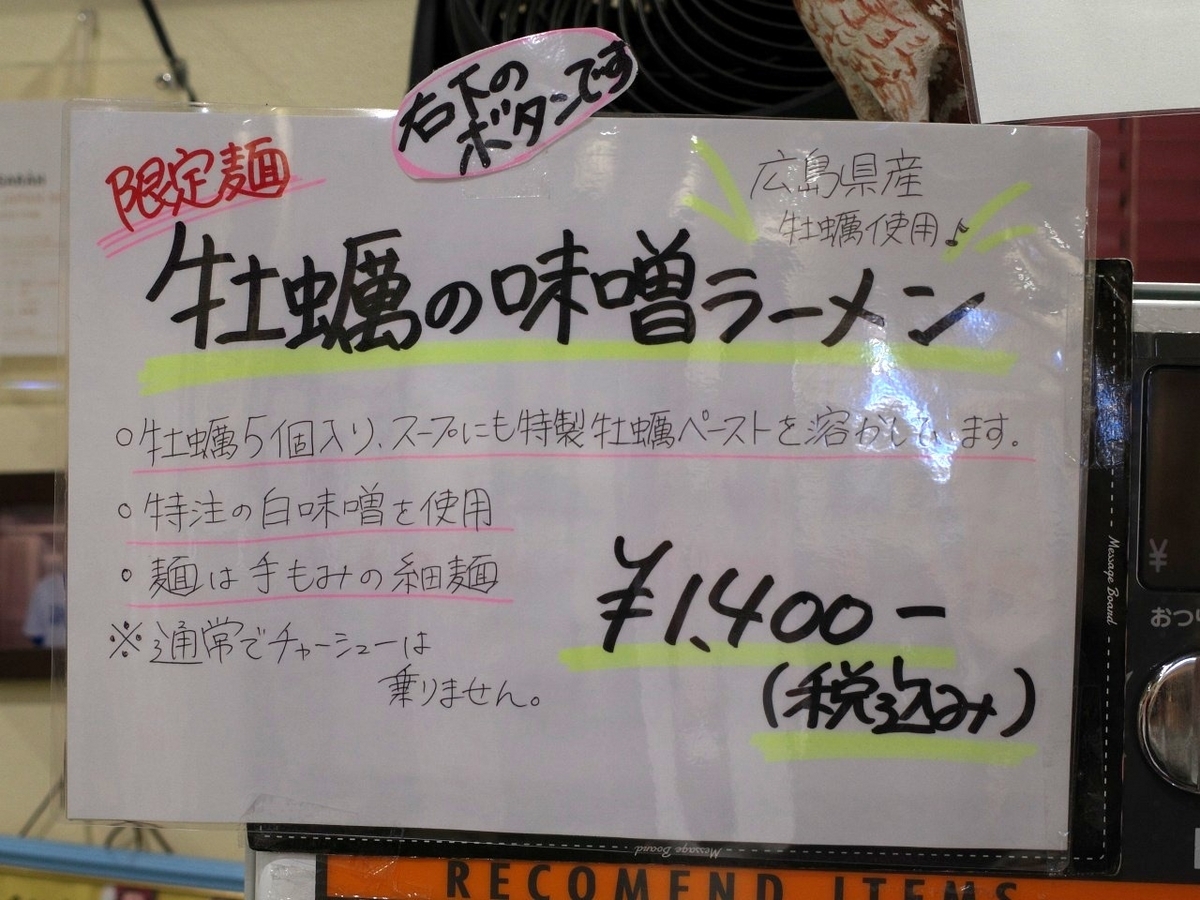 右下の
ボタンです
限定麺
広島県産
牡蠣使用♪
牡蠣の味噌ラーメン
○牡蠣5個入り、スープにも特製牡蠣ペーストを溶かしています。
○特注の白味噌を使用
○麺は手もみの細麺
※通常でチャーシューは
乗りません。
¥1,400-
(税込み)
Message Board
Message Board
¥
おつり
RECOMEND ITEMS